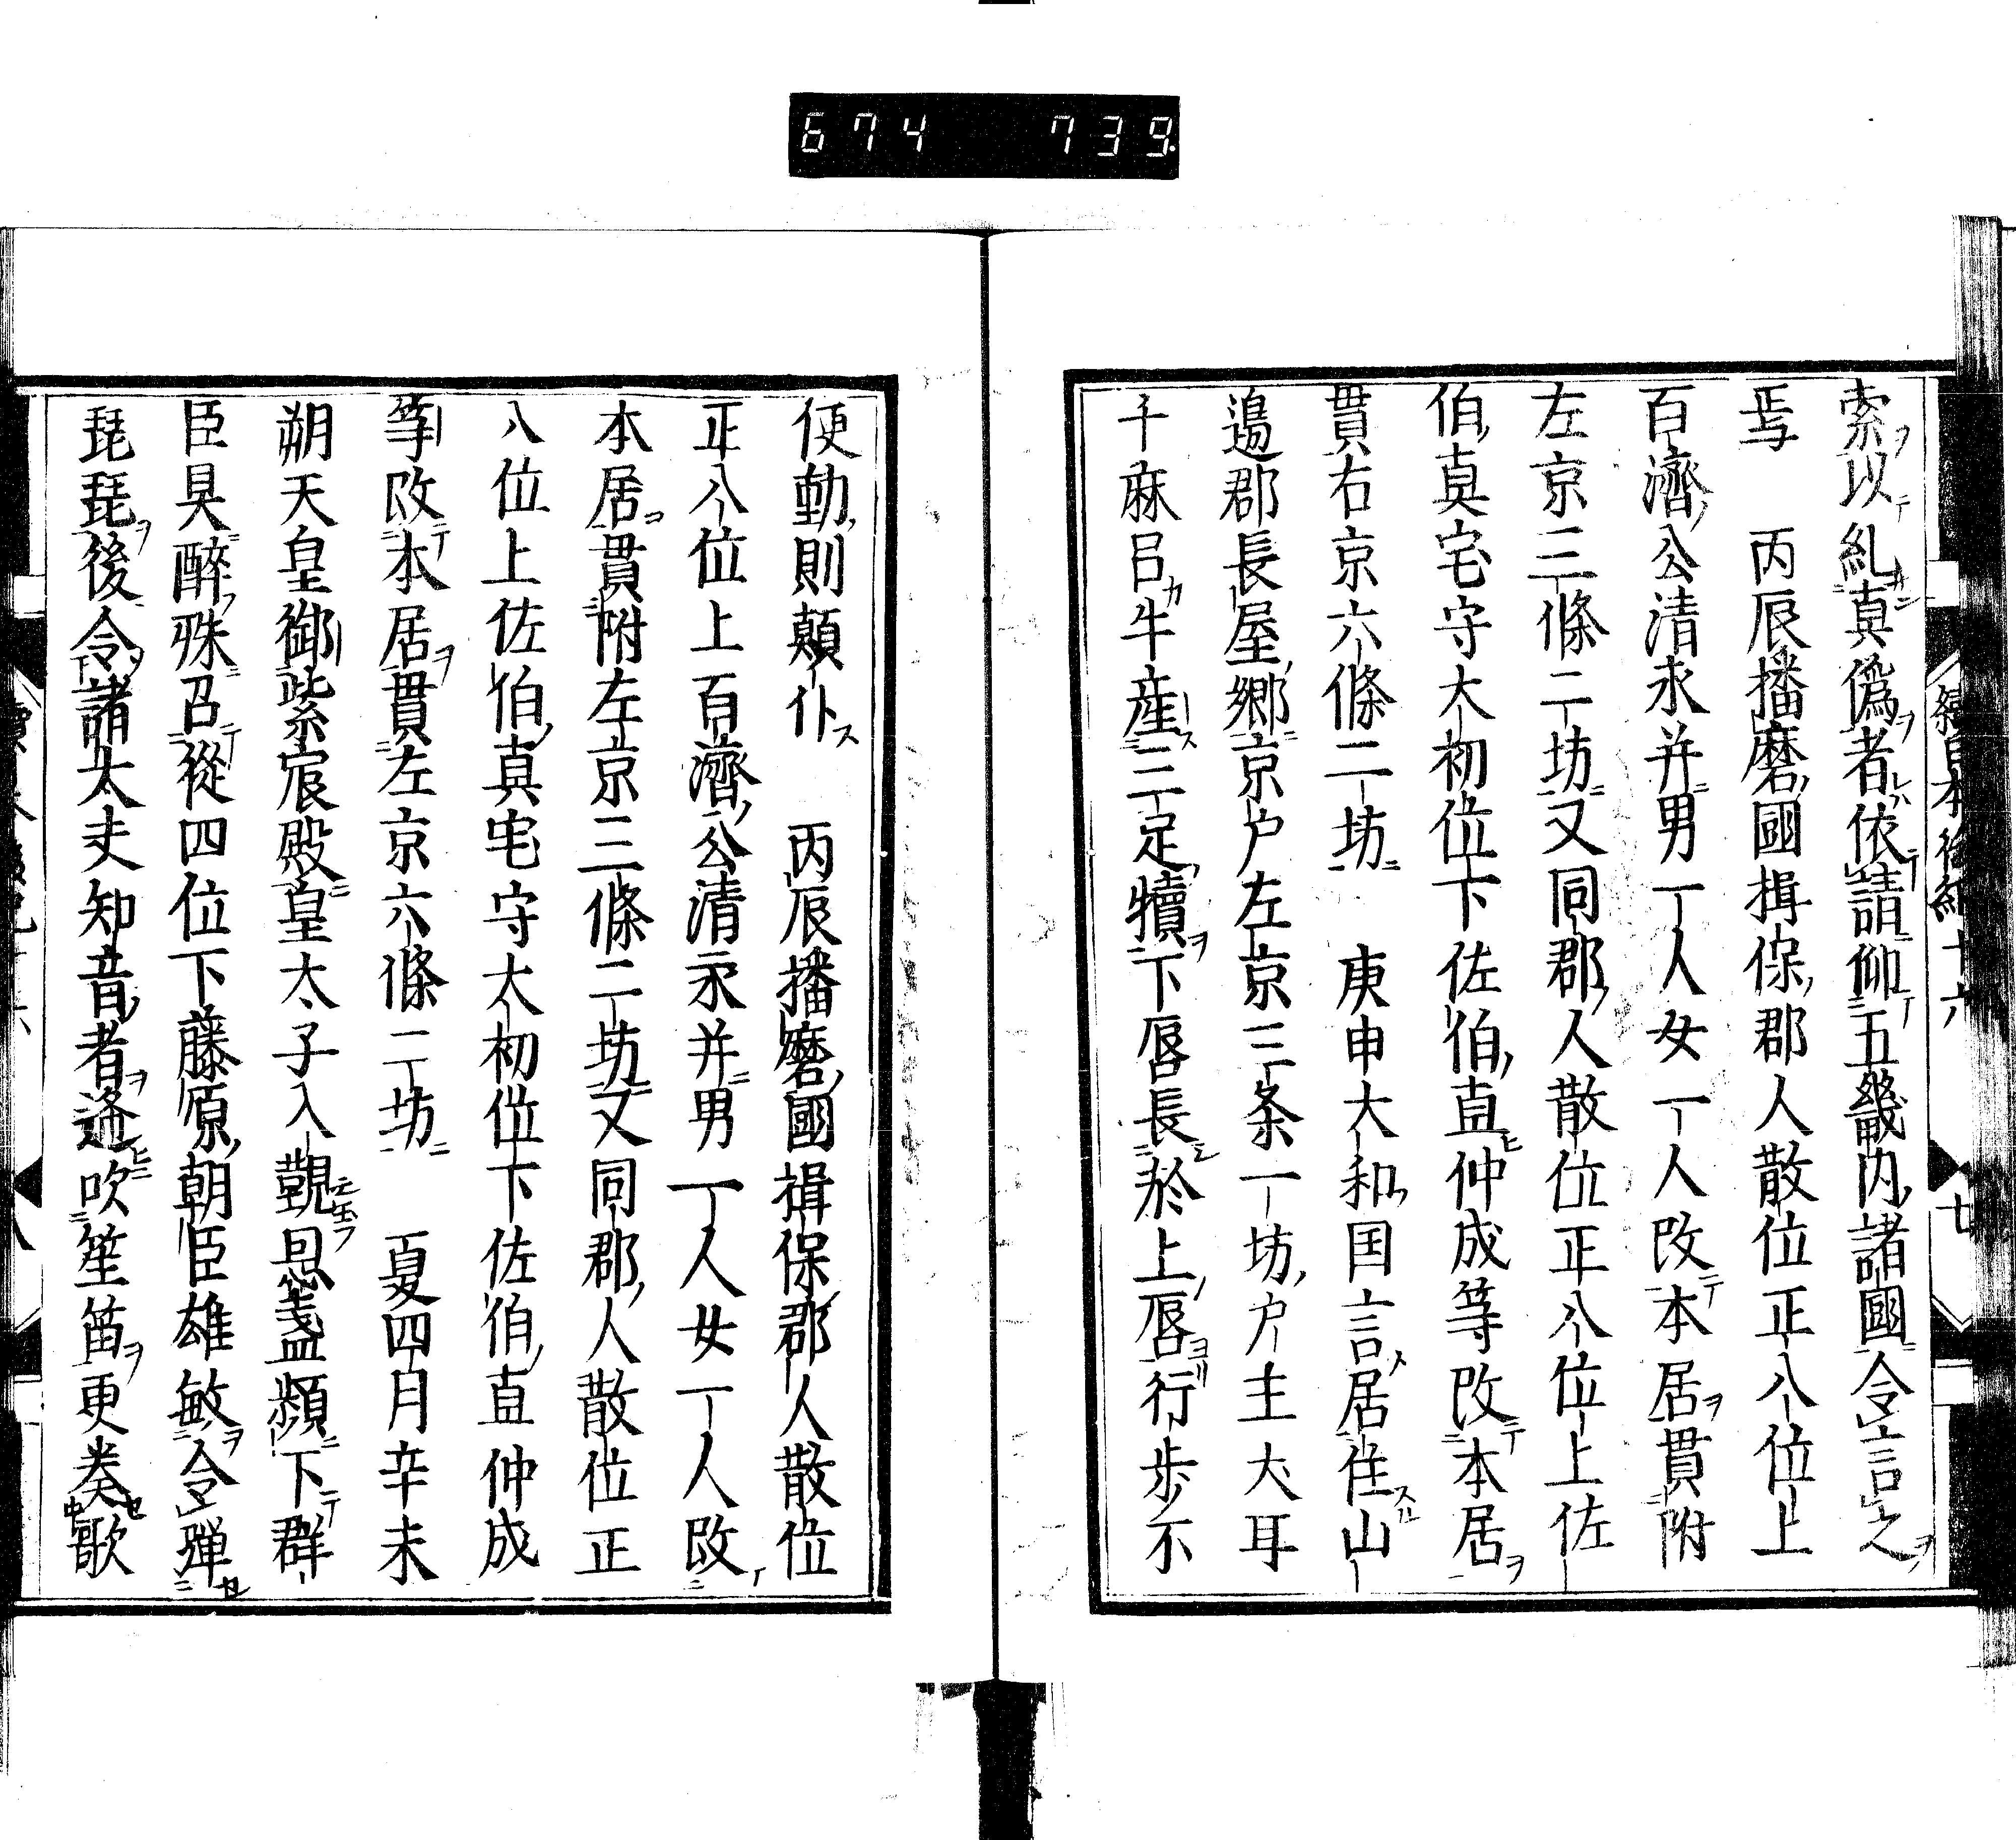 674 739
續日本後紀十六 七
索以糺真僞者依請仰五畿内諸國令言之
焉 丙辰播磨國揖保郡人散位正八位上
百濟公清永并男一人女一人改本居貫附
左京三條二坊又同郡人散位正八位上佐
伯真宅守大初位下佐伯直仲成等改本居
貫右京六條二坊 庚申大和国言居住山
邉郡長屋郷京户左京三条一坊户主大耳
千麻呂牛産三足犢下唇長於上唇行歩不
便動則顛仆 丙辰播磨國揖保郡人散位
正八位上百濟公清永并男一人女一人改
本居貫附左京三條二坊又同郡人散位正
八位上佐伯真宅守大初位下佐伯直仲成
等改本居貫左京六條二坊 夏四月辛未
朔天皇御紫宸殿皇太子入覲恩盞頻下群
臣具醉殊召從四位下藤原朝臣雄敏令弾
琵琶後令諸大夫知音者逓吹笙笛更奏歌